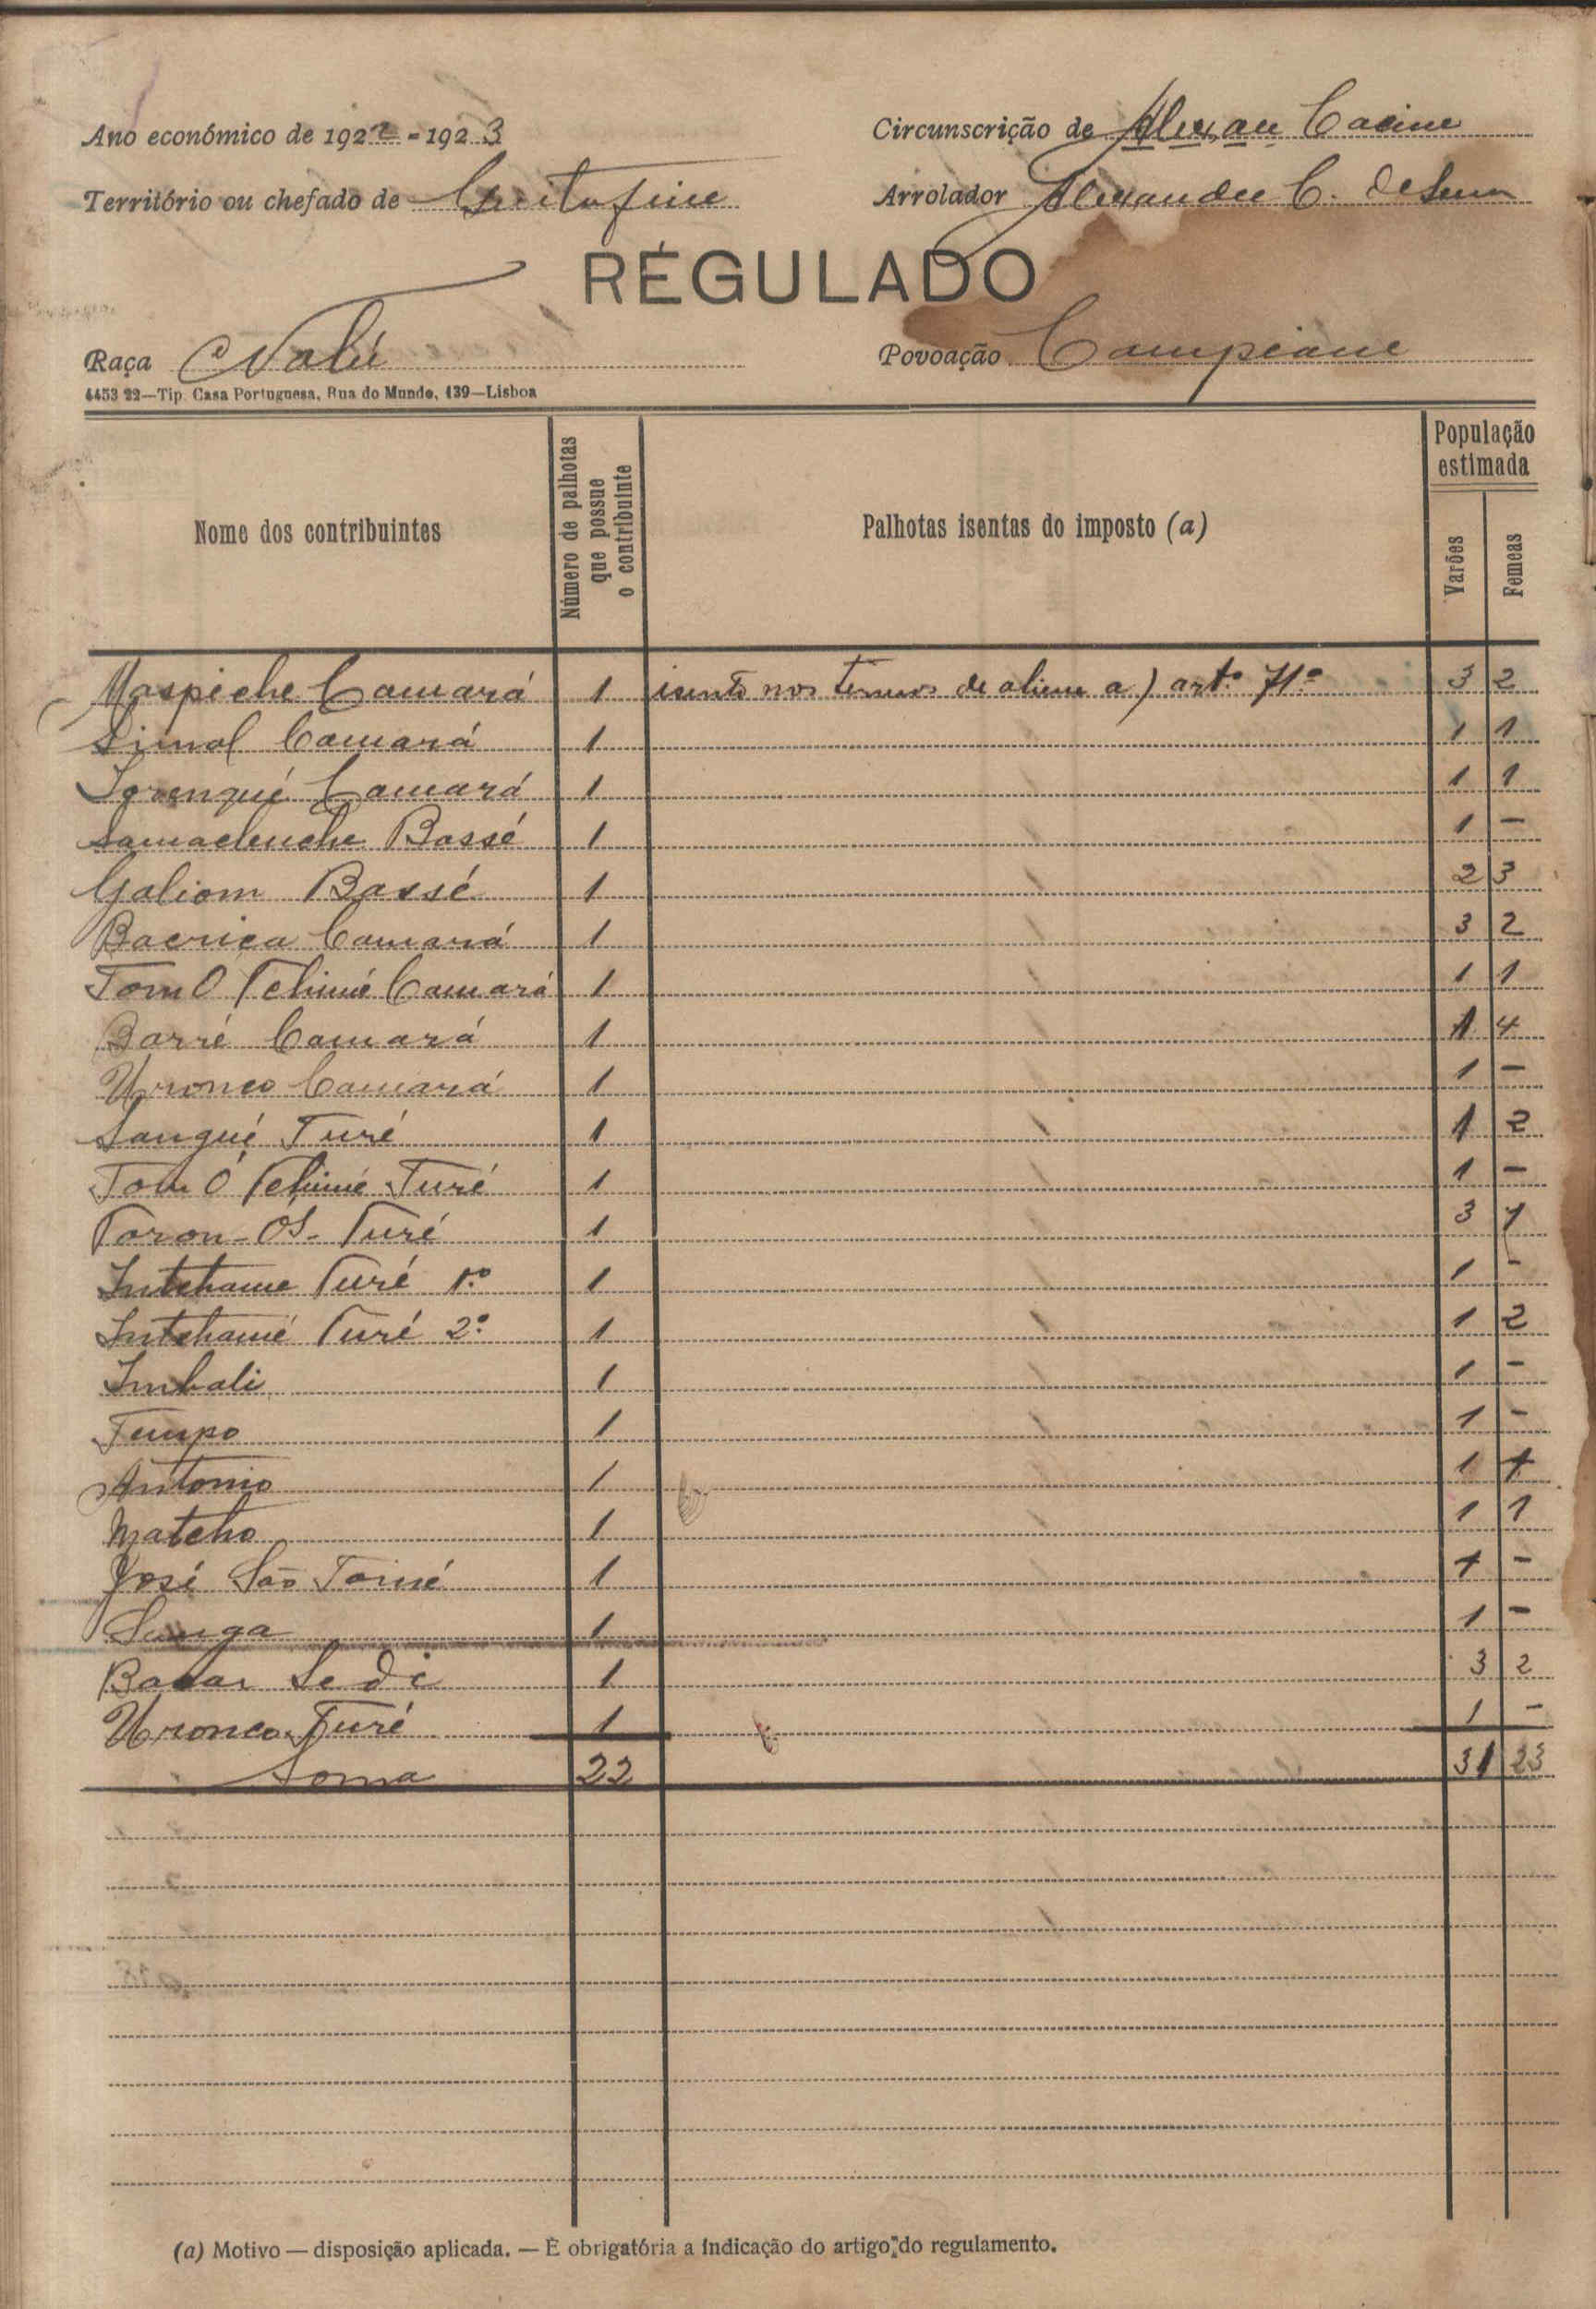 Ano económico de 1922-1923
Circunscrição de Cacine
Território ou chefado de
Arrolador Alexandre C. de Sena
RÉGULADO
Raça Nalú
Povoação Campeane
4453 22—Tip. Casa Portuguesa, Rua do Mundo, 139—Lisboa
Nome dos contribuintes
Número de palhotas que possue o contribuinte
Palhotas isentas do imposto (a)
População estimada
Varões
Femeas
Maspiche Camará 1 isento nos termos de aliena a) artº 71º 3 2
Camará 1 1 1
Camará 1 1 1
Bassé 1 1 -
Galiom Bassé 1 2 3
Camará 1 3 2
Tom Ó Tchimé Camará 1 1 1
Barré Camará 1 1 4
Uronco Camará 1 1 -
Sangué Turé 1 1 2
Tom Ó Tchimé Turé 1 1 -
Turé 1 3 1
Intchame Turé 1º 1 1 -
Intchamé Turé 2º 1 1 2
Imbali 1 1 -
Tempo 1 1 -
Antonio 1 1 1
Matcho 1 1 1
José São Tomé 1 1 -
Sunga 1 1 -
1 3 2
Uronco Turé 1 1 -
Soma 22 31 23
(a) Motivo — disposição aplicada. — É obrigatória a indicação do artigo do regulamento.